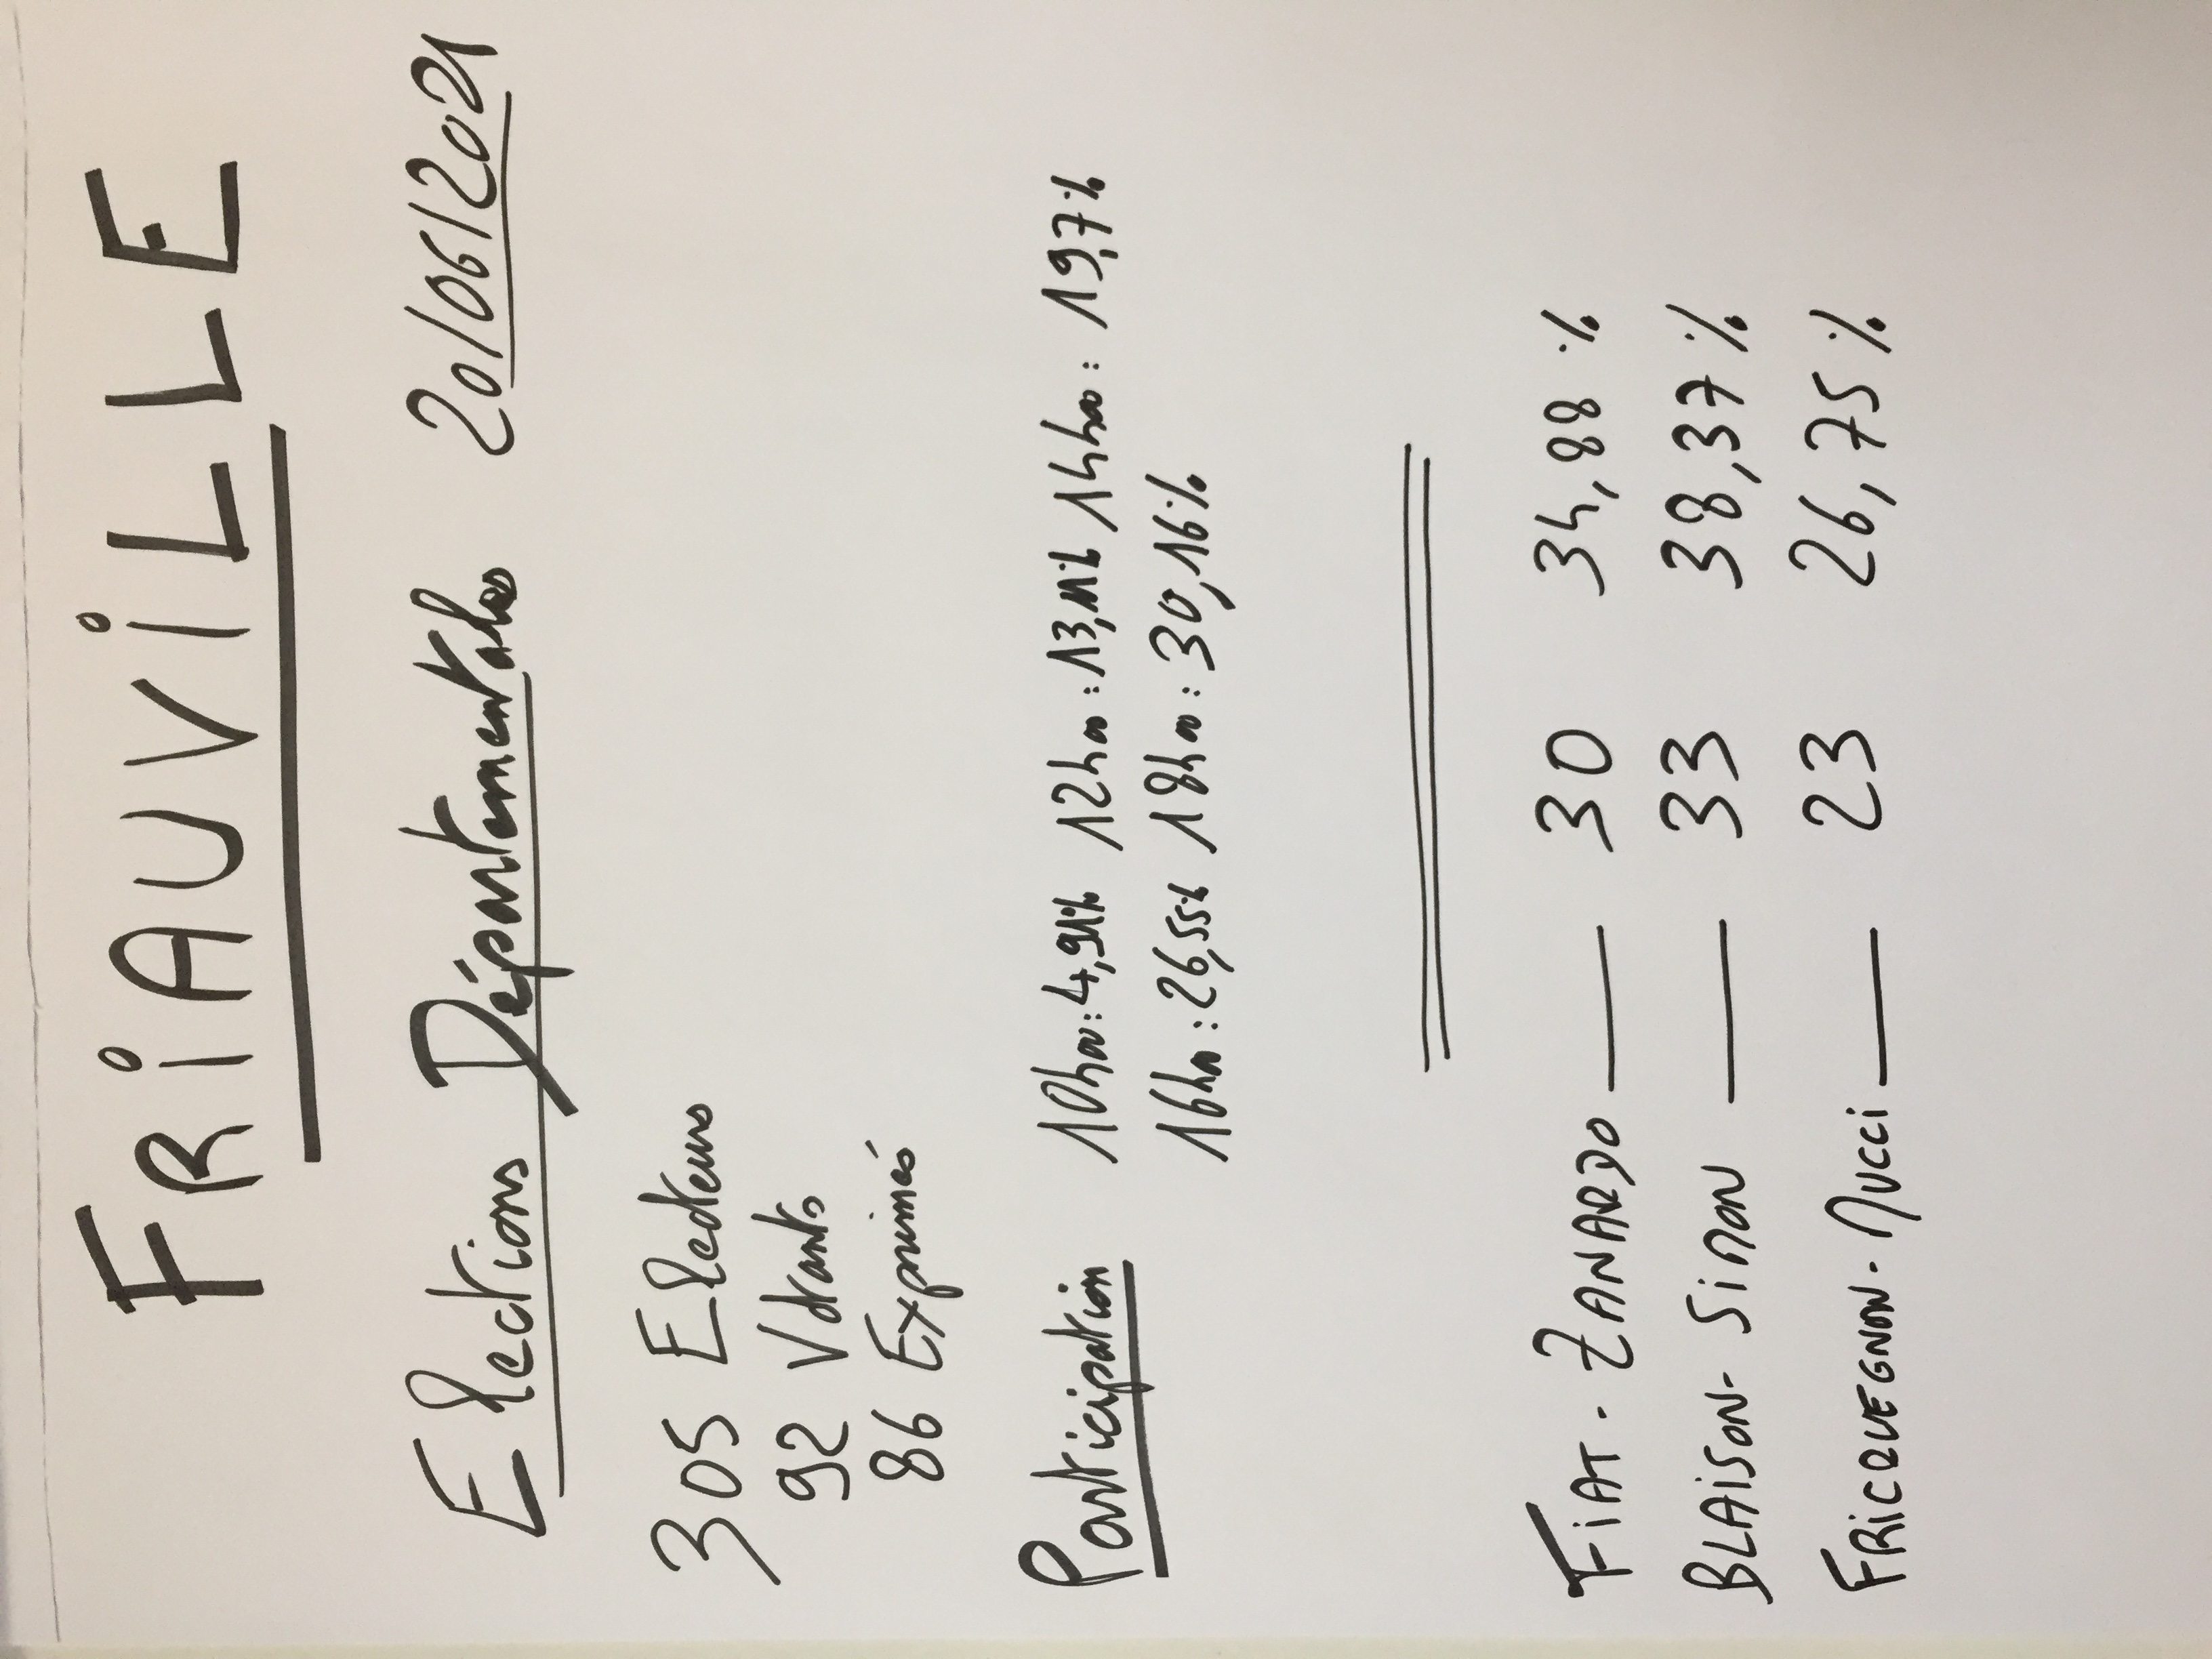 FRiAUViLLE
Elections Départementales 20/06/2021
305 Electeurs
92 Votants
86 Exprimés
Participation 10h00: 4,91% 12h00: 13,11% 14h00: 19,7%
16h00: 26,55% 18h00: 30,16%
FiAT - ZANARDO — 30 34,88 %
BLAiSON - SiMON — 33 38,37 %
FRiCQUEGNON - NUCCi — 23 26,75 %